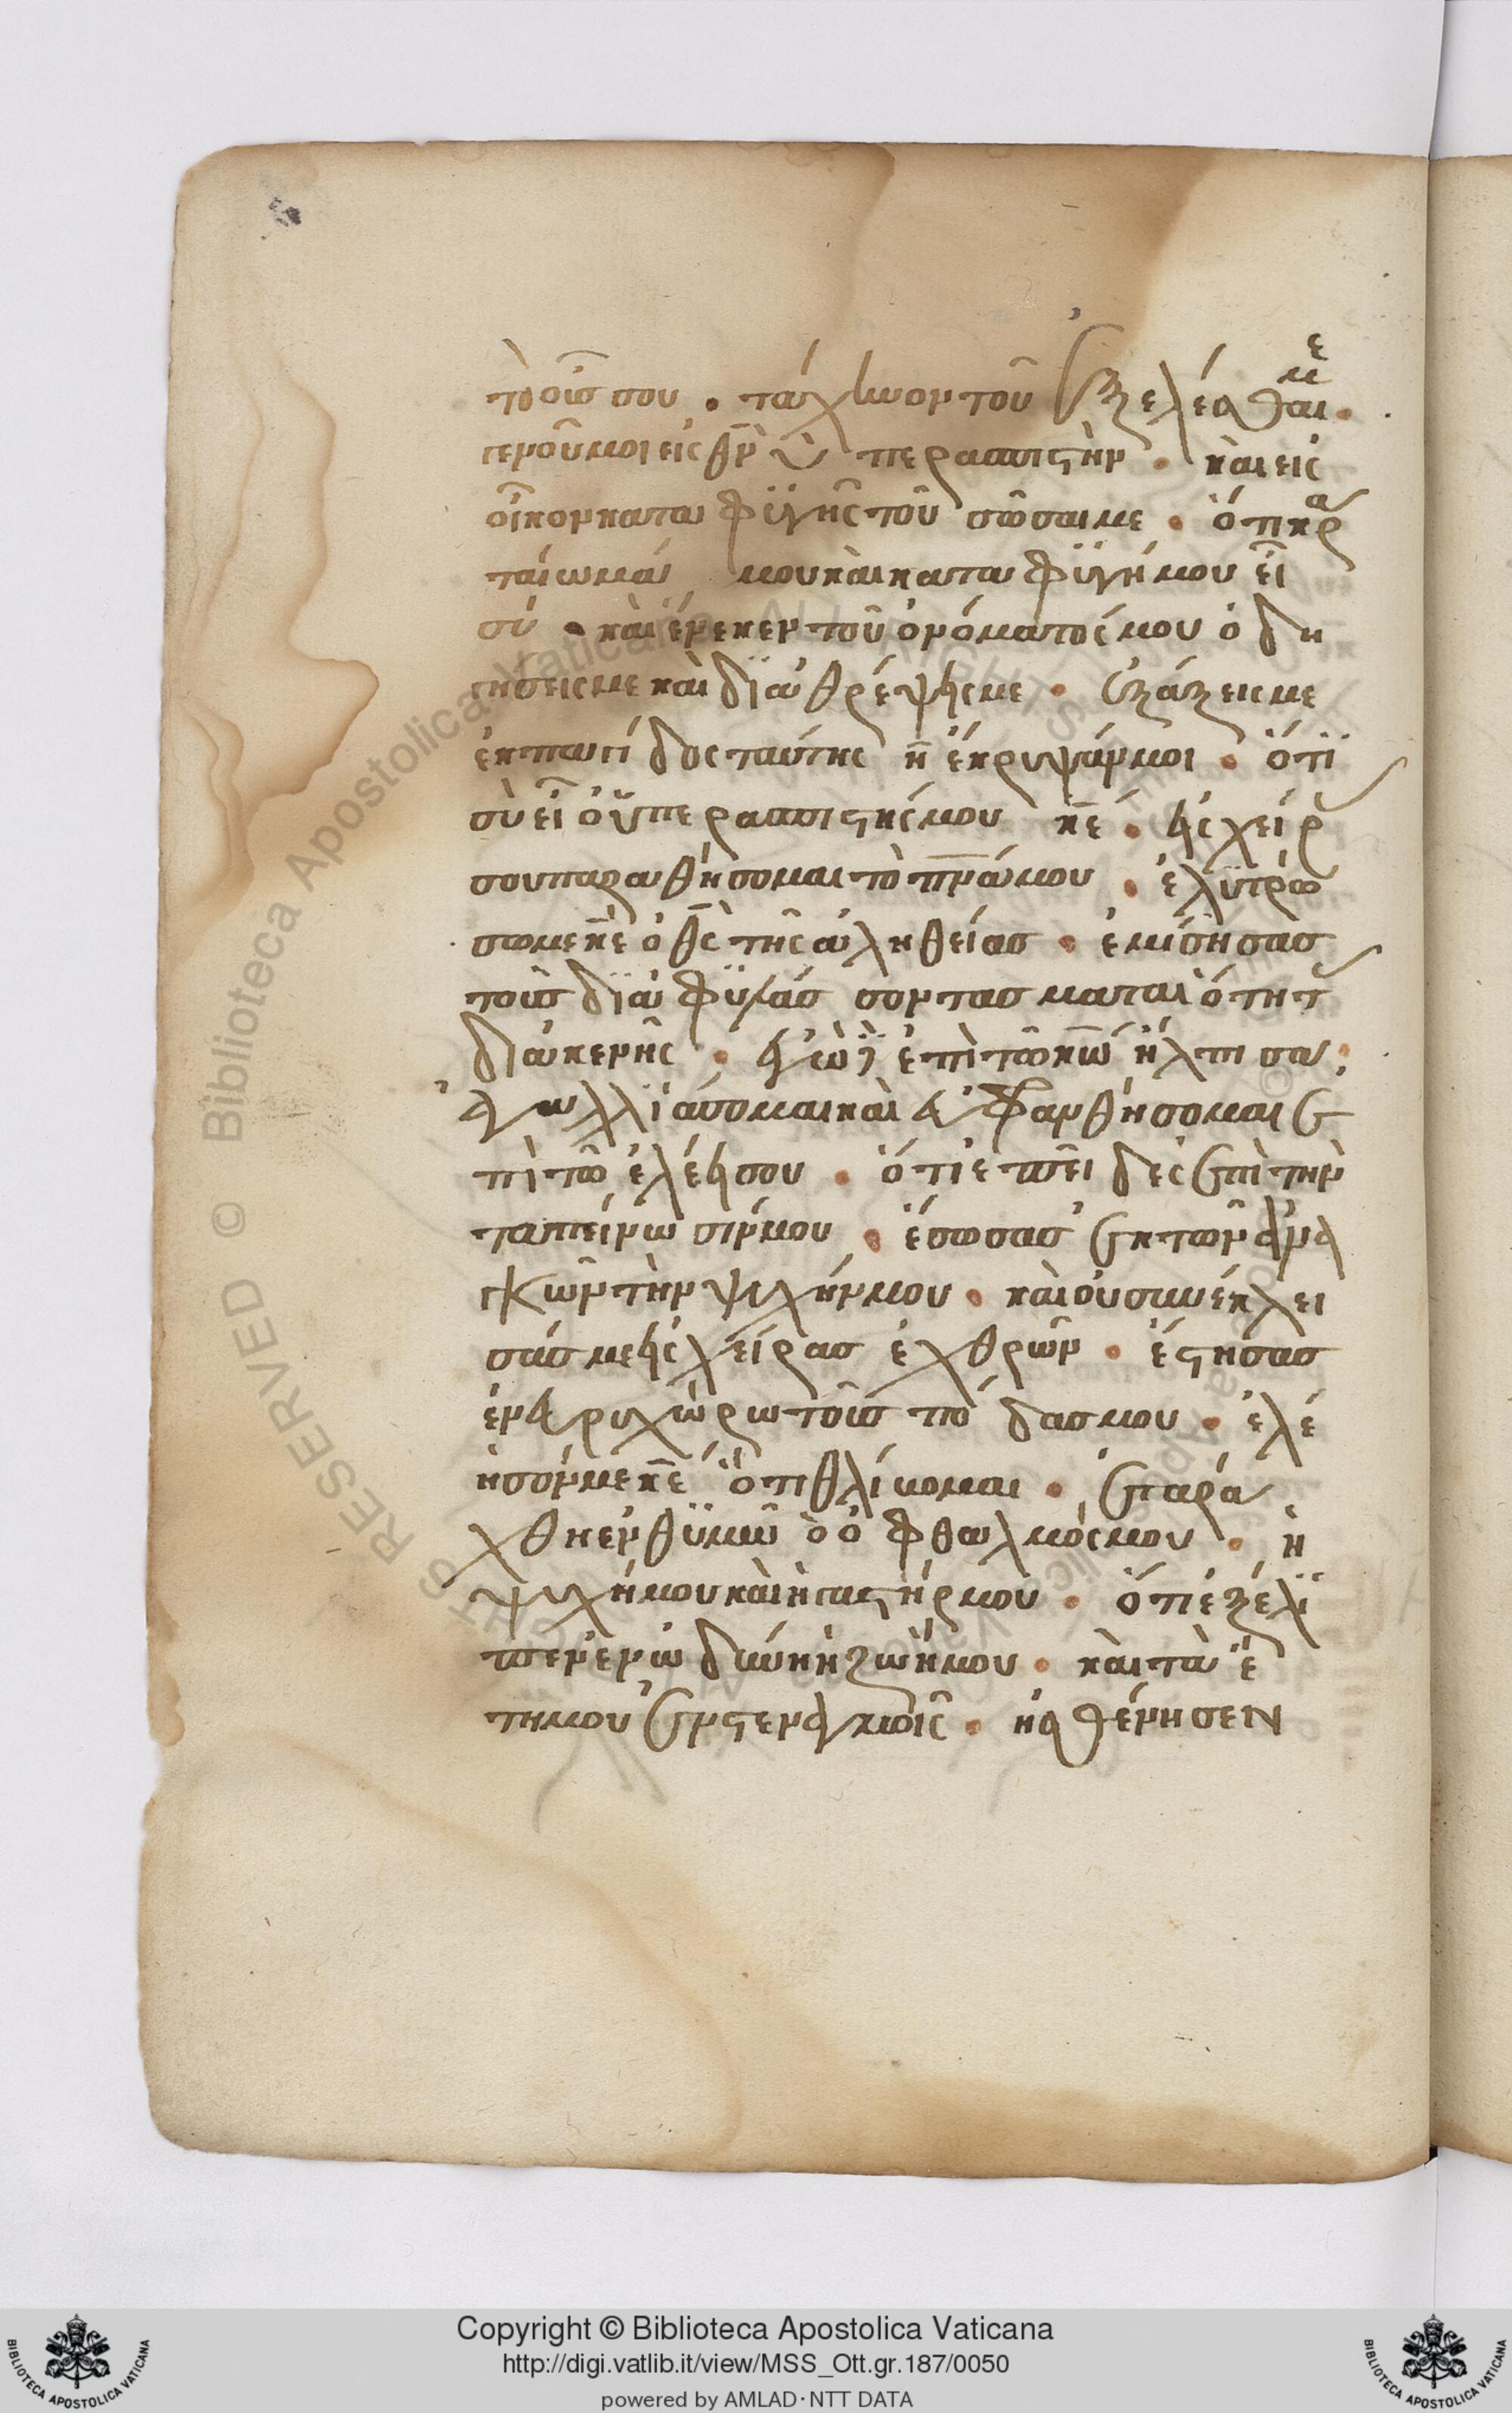 τὸ οὖς σου · τάχυνον τοῦ ἐξελέσθαι με ·
γενοῦ μοι εἰς θν̅ ὑπερασπιστὴν · καὶ εἰς
οἶκον καταφϋγῆς τοῦ σῶσαι με · ὅτι κρα
ταίωμά μου καὶ καταφϋγή μου εἶ
σύ · καὶ ἕνεκεν τοῦ ὀνόματός μου ὁδη
γήσεις με καὶ δϊαθρέψεις με · ἐξάξεις με
ἐκ παγίδος ταύτης ἧ ἔκρυψάν μοι · ὅτϊ
σὺ εἶ ὁ ὑπερασπιστής μου κε̅ · εἰς χεῖρ
σου παραθήσομαι το πνα̅ μου · ἐλϋτρώ
σω με κε̅ ὁ θς̅ τῆς ἀληθείας · ἐμίσησας
τοὺς δϊαφϋλάσσοντας ματαιότητ
διακενῆς · ἐγὼ δὲ ἐπὶ τῶ κω̅ ἤλπισα ·
ἀγαλλϊάσομαι καὶ εὐφρανθήσομαι ἐ
πὶ τῶ ἐλέει σου · ὅτι ἐπεῖδες ἐπὶ τὴν
ταπείνωσίν μου · ἔσωσας ἐκ τῶν ἀνα
γκῶν τὴν ψυχήν μου · καὶ οὐ συνέκλει
σάς με εἰς χεῖρας ἐχθρῶν · ἔστησας
ἐν εὐρυχώρω τοὺς πόδας μου · ἐλέ
ησόν με κε̅ ὅτι θλίβομαι · ἐταρά
χθη ἐν θϋμῶ ὁ ὀφθαλμός μου · ἡ
ψυχή μου καὶ ἡ γαστήρ μου · ὅτι ἐξέλϊ
πεν ἐν ὀδύνη ἡ ζωή μου · καὶ τὰ ἔ
τη μου ἐν στεναγμοῖς · ἠσθένησεν
Copyright © Biblioteca Apostolica Vaticana
http://digi.vatlib.it/view/MSS_Ott.gr.187/0050
powered by AMLAD·NTT DATA